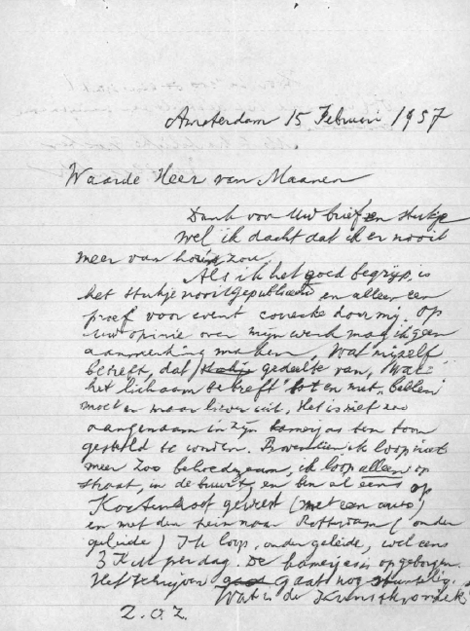 Amsterdam 15 Februari 1957
Waarde Heer van Maanen
Dank voor Uw brief en stukje
wel ik dacht dat ik er nooit
meer van hooren zou.
Als ik het goed begrijp is
het stukje nooit gepubliceerd en alleen een
proef voor event correctie door mij. Op
Uw opinie over mijn werk mag ik geen
aanmerking maken, Wat mijzelf
betreft, dat gedeelte van, "Wat
het lichaam betreft" tot en met
moet er maar liever uit. Het is niet zoo
aangenaam in zijn kamerjas ten toon
gesteld te worden. Bovendien ik loop niet
meer zoo behoedzaam, ik loop alleen op
straat, in de buurt, en ben al eens op
geweest (met een auto)
en met den trein naar Rotterdam (onder
geleide) Ik loop, onder geleide, wel eens
3 KM per dag. De kamerjas is opgeborgen.
Het schrijven gaat nog
Wat is de Kunstkroniek
Z.O.Z.